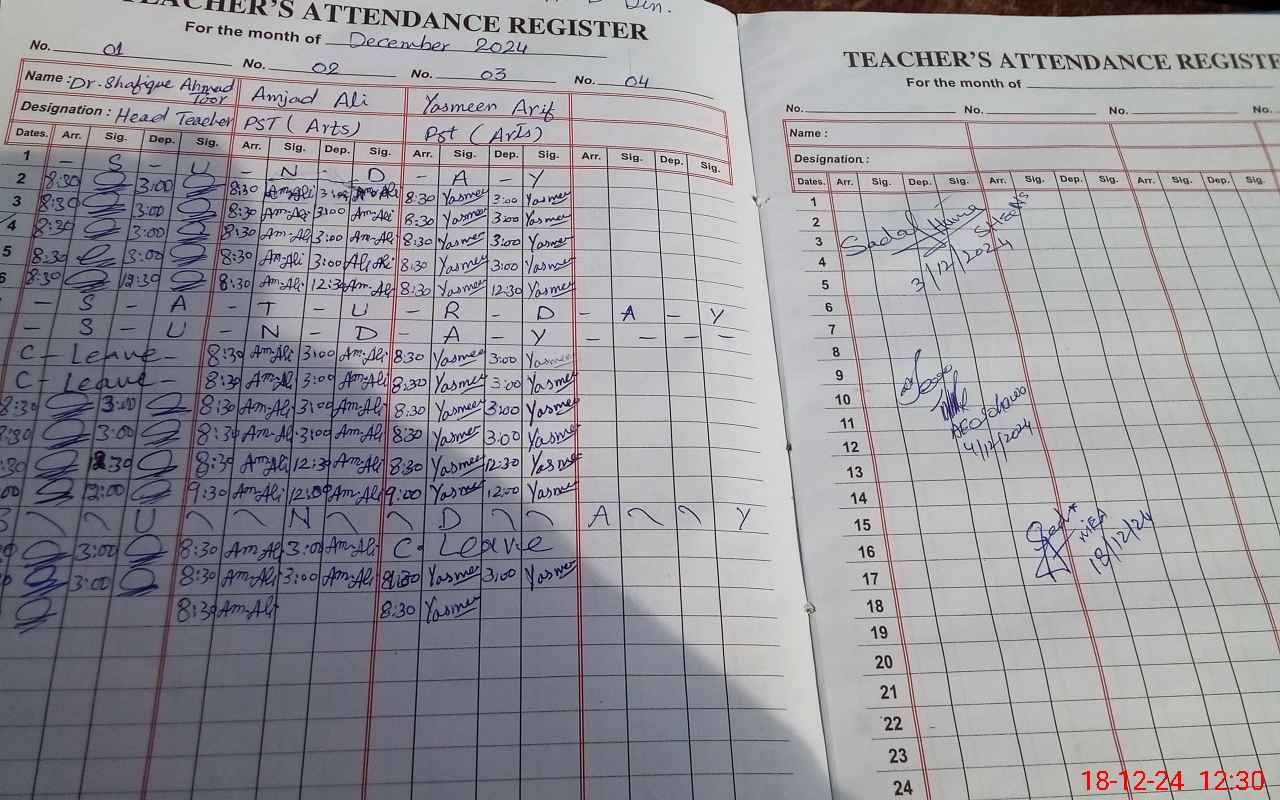 Din.
TEACHER'S ATTENDANCE REGISTER
For the month of December 2024
No. 01 No. 02 No. 03 No. 04
Name : Dr. Shafique Ahmad Toor Amjad Ali Yasmeen Arif
Designation : Head Teacher PST (Arts) Pst (Arts)
Dates. Arr. Sig. Dep. Sig. Arr. Sig. Dep. Sig. Arr. Sig. Dep. Sig. Arr. Sig. Dep. Sig.
1 - S - U - N - D - A - Y
2 8:30 3:00 8:30 Am-Ali 3:00 Am-Ali 8:30 Yasmee 3:00 Yasmee
3 8:30 3:00 8:30 Am-Ali 3:00 Am-Ali 8:30 Yasmee 3:00 Yasmee
4 8:30 3:00 8:30 Am-Ali 3:00 Am-Ali 8:30 Yasmee 3:00 Yasmee
5 8:30 3:00 8:30 Am-Ali 3:00 Ali Ali 8:30 Yasmee 3:00 Yasmee
6 8:30 12:30 8:30 Am-Ali 12:30 Am-Ali 8:30 Yasmee 12:30 Yasmee
- S - A - T - U - R - D - A - Y
- S - U - N - D - A - Y - - - -
C - Leave - 8:30 Am-Ali 3:00 Am-Ali 8:30 Yasmee 3:00 Yasmee
C - Leave - 8:30 Am-Ali 3:00 Am-Ali 8:30 Yasmee 3:00 Yasmee
8:30 3:00 8:30 Am-Ali 3:00 Am-Ali 8:30 Yasmee 3:00 Yasmee
8:30 3:00 8:30 Am-Ali 3:00 Am-Ali 8:30 Yasmee 3:00 Yasmee
:30 8:30 Am-Ali 12:30 Am-Ali 8:30 Yasmee 12:30 Yasmee
00 12:00 9:30 Am-Ali 12:00 Am-Ali 9:00 Yasmee 12:00 Yasmee
U N D A Y
3:00 8:30 Am-Ali 3:00 Am-Ali C - Leave
3:00 8:30 Am-Ali 3:00 Am-Ali Yasmee 3:00 Yasmee
8:30 Am-Ali 8:30 Yasmee
TEACHER'S ATTENDANCE REGISTE
For the month of
No. No. No. No.
Name :
Designation :
Dates. Arr. Sig. Dep. Sig. Arr. Sig. Dep. Sig. Arr. Sig. Dep. Sig.
1
2
3 Sadaf
4 3/12/2024
5
6
7
8
9
10
11
12 4/12/2024
13
14
15
16 MEA
17 18/12/24
18
19
20
21
22
23
24
18-12-24 12:30